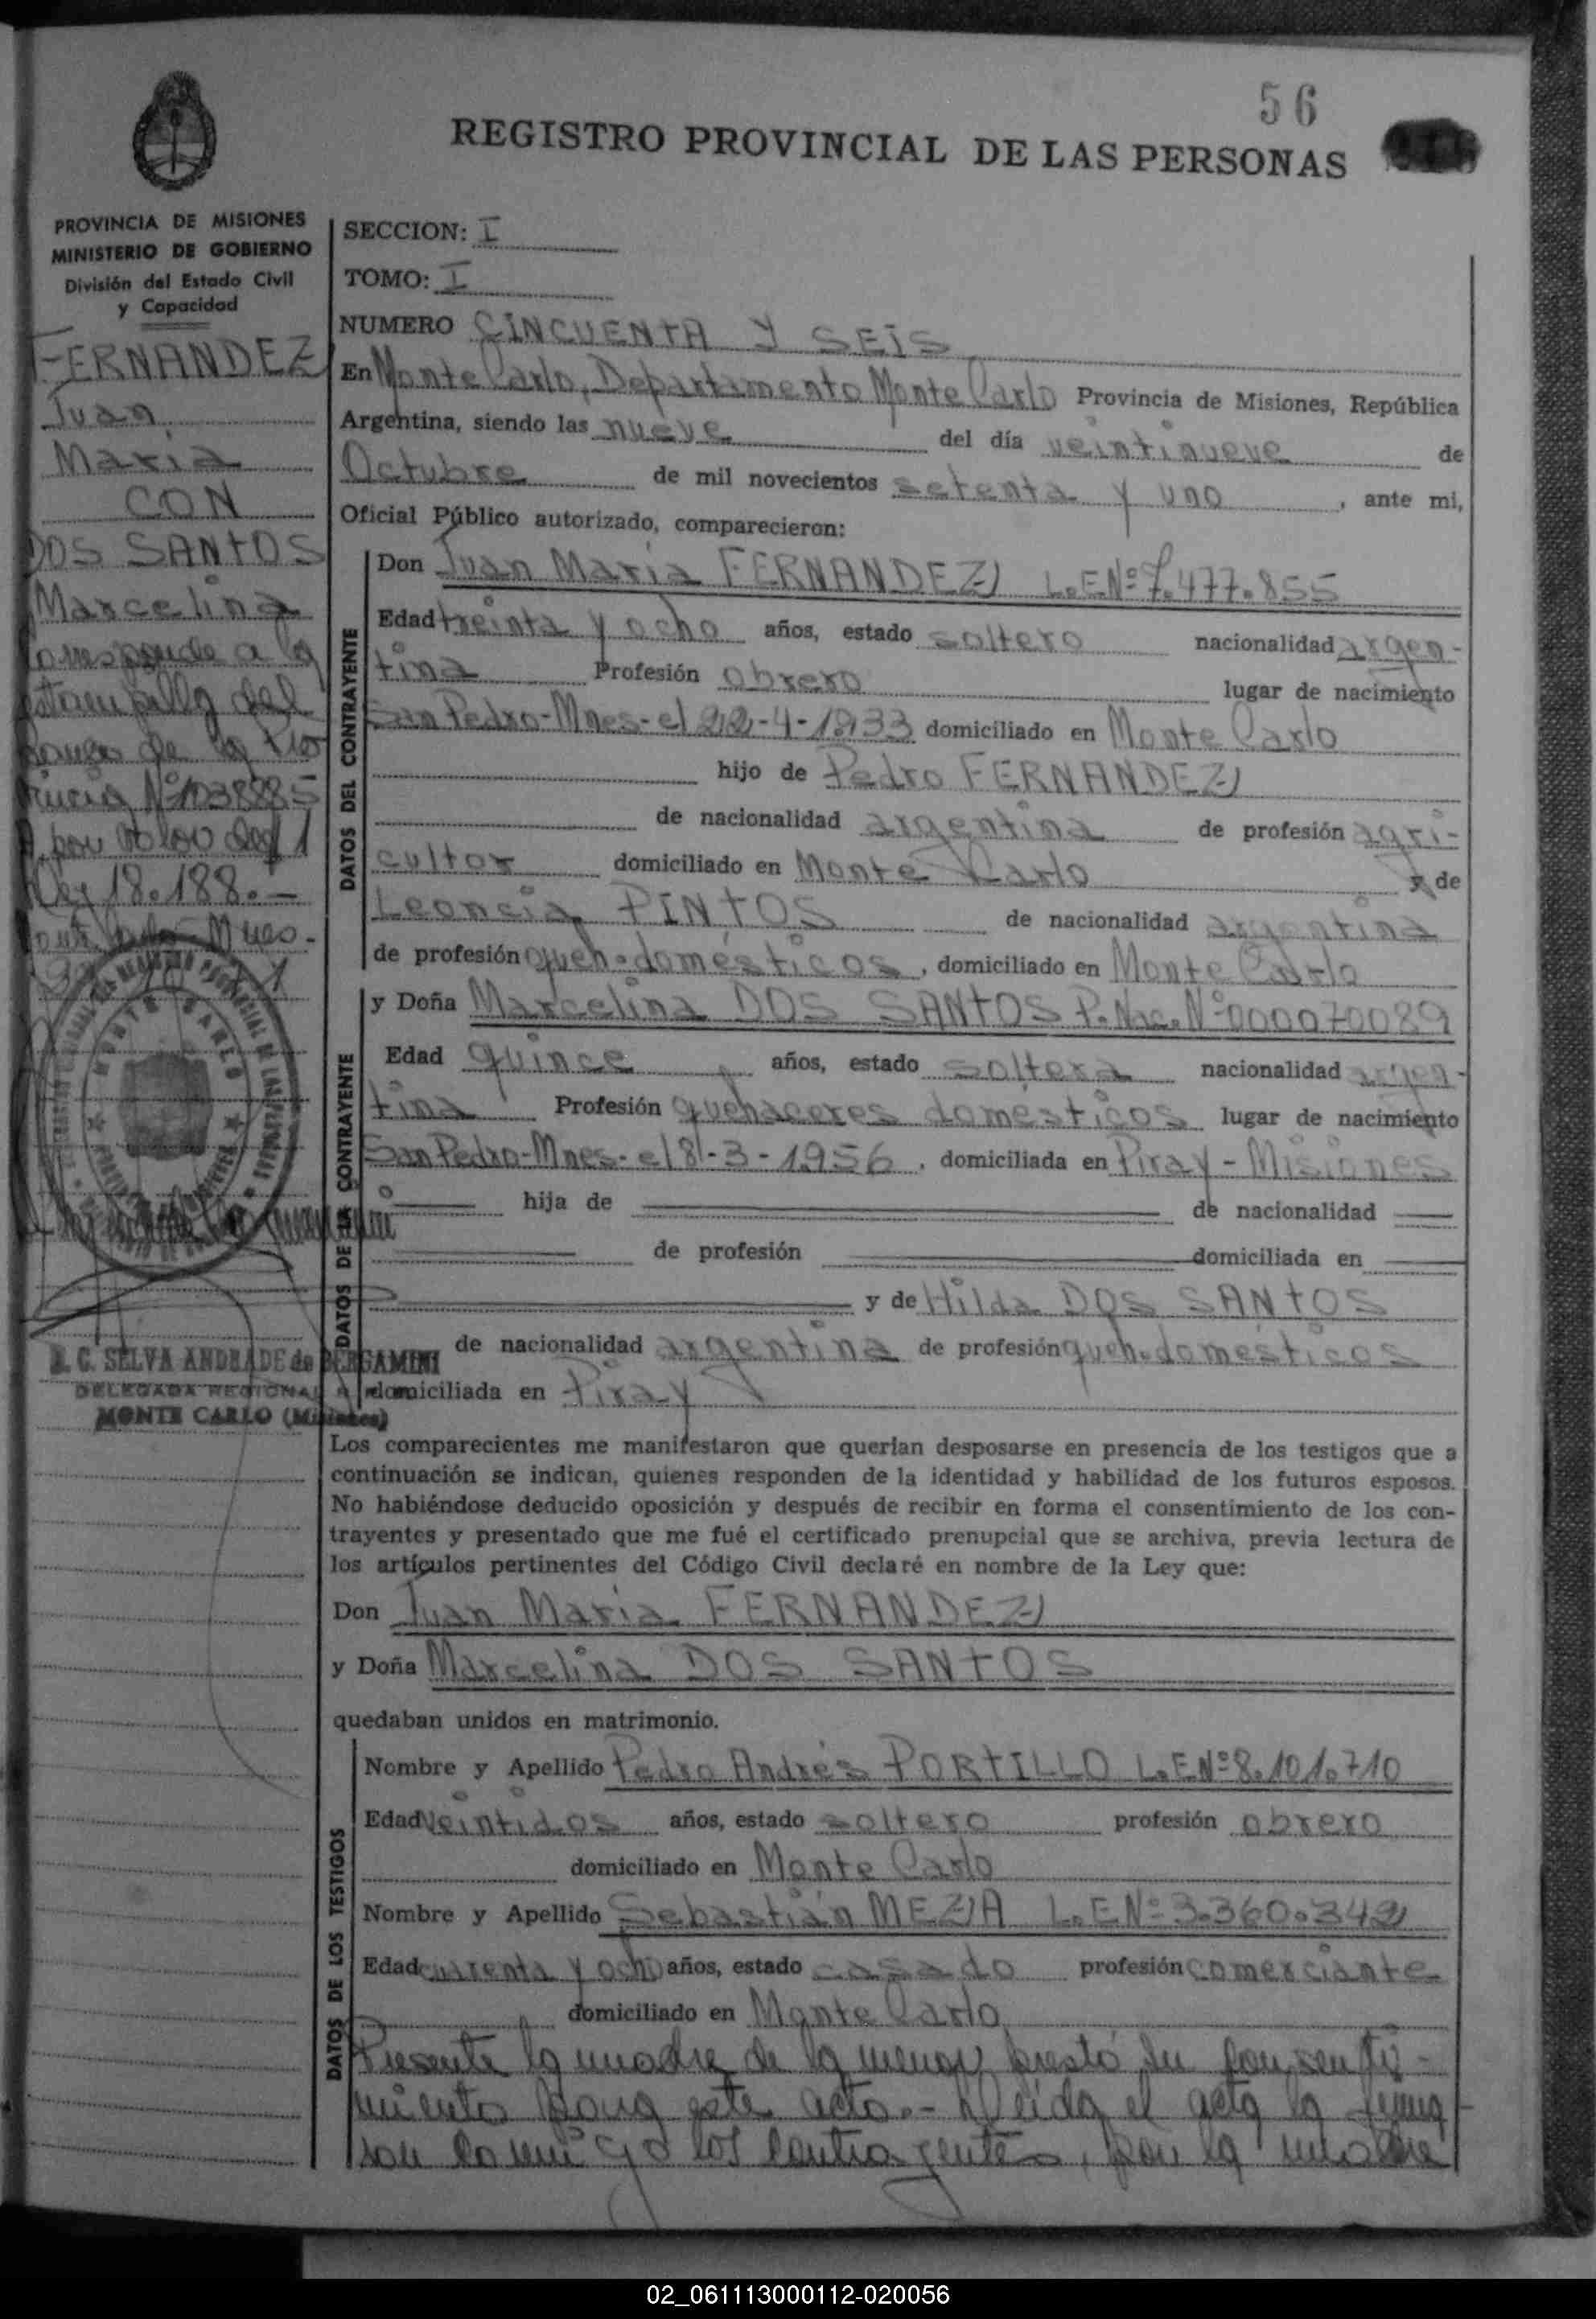 56
REGISTRO PROVINCIAL DE LAS PERSONAS
PROVINCIA DE MISIONES
MINISTERIO DE GOBIERNO
División del Estado Civil
y Capacidad
FERNANDEZ
Juan
María
CON
DOS SANTOS
Marcelina
Corresponde a la
estampilla del
Nº 1038885
A por Valor de $ 1
Ley 18.188.-
MONTE CARLO
R. C. SELVA ANDRADE de BERGAMINI
DELEGADA REGIONAL
MONTE CARLO (Misiones)
SECCION: I
TOMO: I
NUMERO CINCUENTA Y SEIS
En Monte Carlo, Departamento Monte Carlo Provincia de Misiones, República
Argentina, siendo las nueve del día veintinueve de
Octubre de mil novecientos setenta y uno, ante mi,
Oficial Público autorizado, comparecieron:
DATOS DEL CONTRAYENTE
Don Juan María FERNANDEZ L.E.Nº 7.477.855
Edad treinta y ocho años, estado soltero nacionalidad argen-
tina Profesión obrero lugar de nacimiento
San Pedro-Mnes- el 22-4-1933 domiciliado en Monte Carlo
hijo de Pedro FERNANDEZ
de nacionalidad argentina de profesión agri-
cultor domiciliado en Monte Carlo y de
Leoncia PINTOS de nacionalidad argentina
de profesión queh. domésticos, domiciliado en Monte Carlo
DATOS DE LA CONTRAYENTE
y Doña Marcelina DOS SANTOS P. Nac. Nº 000070089
Edad quince años, estado soltera nacionalidad argen-
tina Profesión quehaceres domésticos lugar de nacimiento
San Pedro-Mnes- el 8-3-1956, domiciliada en Piray-Misiones
hija de de nacionalidad
de profesión domiciliada en
y de Hilda DOS SANTOS
de nacionalidad argentina de profesión queh. domésticos
domiciliada en Piray
Los comparecientes me manifestaron que querían desposarse en presencia de los testigos que a
continuación se indican, quienes responden de la identidad y habilidad de los futuros esposos.
No habiéndose deducido oposición y después de recibir en forma el consentimiento de los con-
trayentes y presentado que me fué el certificado prenupcial que se archiva, previa lectura de
los artículos pertinentes del Código Civil declaré en nombre de la Ley que:
Don Juan María FERNANDEZ
y Doña Marcelina DOS SANTOS
quedaban unidos en matrimonio.
DATOS DE LOS TESTIGOS
Nombre y Apellido Pedro Andrés PORTILLO L.E.Nº 8.101.710
Edad veintidos años, estado soltero profesión obrero
domiciliado en Monte Carlo
Nombre y Apellido Sebastián MEZA L.E.Nº 3.360.342
Edad cuarenta y ocho años, estado casado profesión comerciante
domiciliado en Monte Carlo
Presente la madre de la menor prestó su consenti-
miento para este acto.- Leida el acta la firma
son conmigo los contrayentes, por la madre
02_061113000112-020056